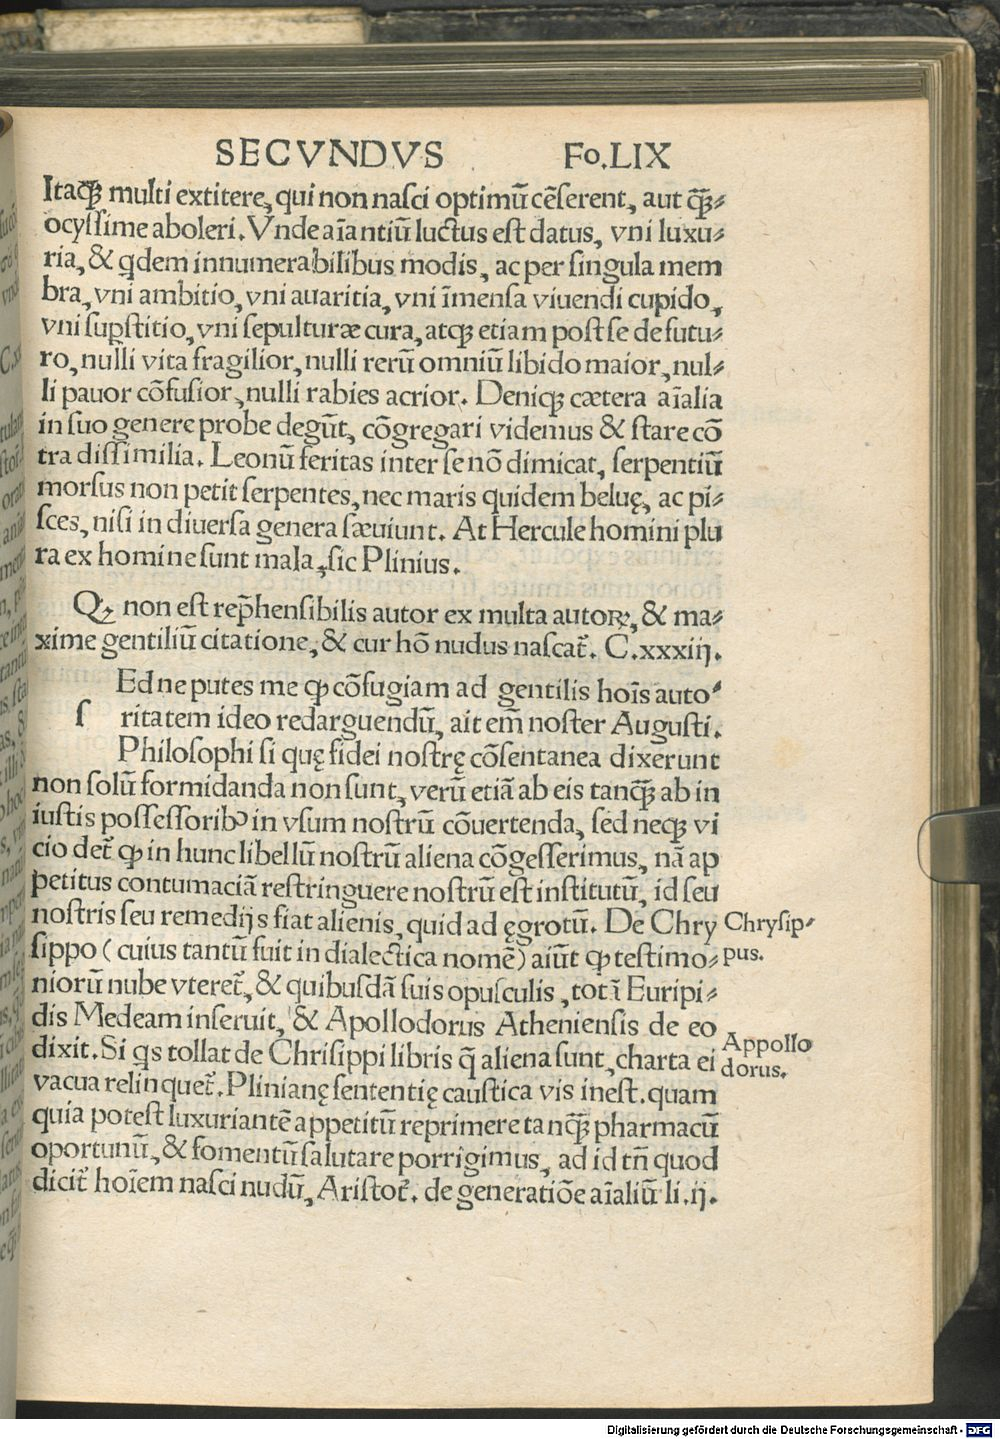 SECVNDVS Fo.LIX
Itaqꝫ multi extitere, qui non nasci optimū cēserent, aut q̄ꝫ⸗
ocyssime aboleri. Vnde aīantiū luctus est datus, vni luxu⸗
ria, & qdem innumerabilibus modis, ac per singula mem
bra, vni ambitio, vni auaritia, vni īmensa viuendi cupido,
vni supstitio, vni sepulturæ cura, atqꝫ etiam post se de futu⸗
ro, nulli vita fragilior, nulli rerū omniū libido maior, nul⸗
li pauor cōfusior, nulli rabies acrior. Deniqꝫ cætera aīalia
in suo genere probe degūt, cōgregari videmus & stare cō
tra dissimilia. Leonū feritas inter se nō dimicat, serpentiū
morsus non petit serpentes, nec maris quidem beluę, ac pi⸗
sces, nisi in diuersa genera sæuiunt. At Hercule homini plu
ra ex homine sunt mala, sic Plinius.
Qꝫ non est rep̄hensibilis autor ex multa autoꝝ, & ma⸗
xime gentiliū citatione, & cur hō nudus nascat̄. C.xxxiij.
Ed ne putes me ꝙ cōfugiam ad gentilis hoīs auto⸗
s ritatem ideo redarguendū, ait em̄ noster Augusti.
Philosophi si quę fidei nostrę cōsentanea dixerunt
non solū formidanda non sunt, verū etiā ab eis tanq̄ꝫ ab in
iustis possessoribꝰ in vsum nostrū cōuertenda, sed neqꝫ vi
cio det̄ ꝙ in hunc libellū nostrū aliena cōgesserimus, nā ap
petitus contumaciā restringuere nostrū est institutū, id seu
nostris seu remedijs fiat alienis, quid ad ęgrotū. De Chry
sippo (cuius tantū fuit in dialectica nomē) aiūt ꝙ testimo⸗
niorū nube vteret̄, & quibusdā suis opusculis, totā Euripi⸗
dis Medeam inseruit, & Apollodorus Atheniensis de eo
dixit. Si qs tollat de Chrisippi libris q̄ aliena sunt, charta ei
vacua relinquet̄. Plinianę sententię caustica vis inest. quam
quia potest luxuriantē appetitū reprimere tanq̄ꝫ pharmacū
oportunū, & fomentū salutare porrigimus, ad id tn̄ quod
dicit̄ hoīem nasci nudū, Aristot̄. de generatiōe aīaliū li.ij.
Chrysip⸗
pus.
Appollo
dorus.
Digitalisierung gefördert durch die Deutsche Forschungsgemeinschaft - DFG